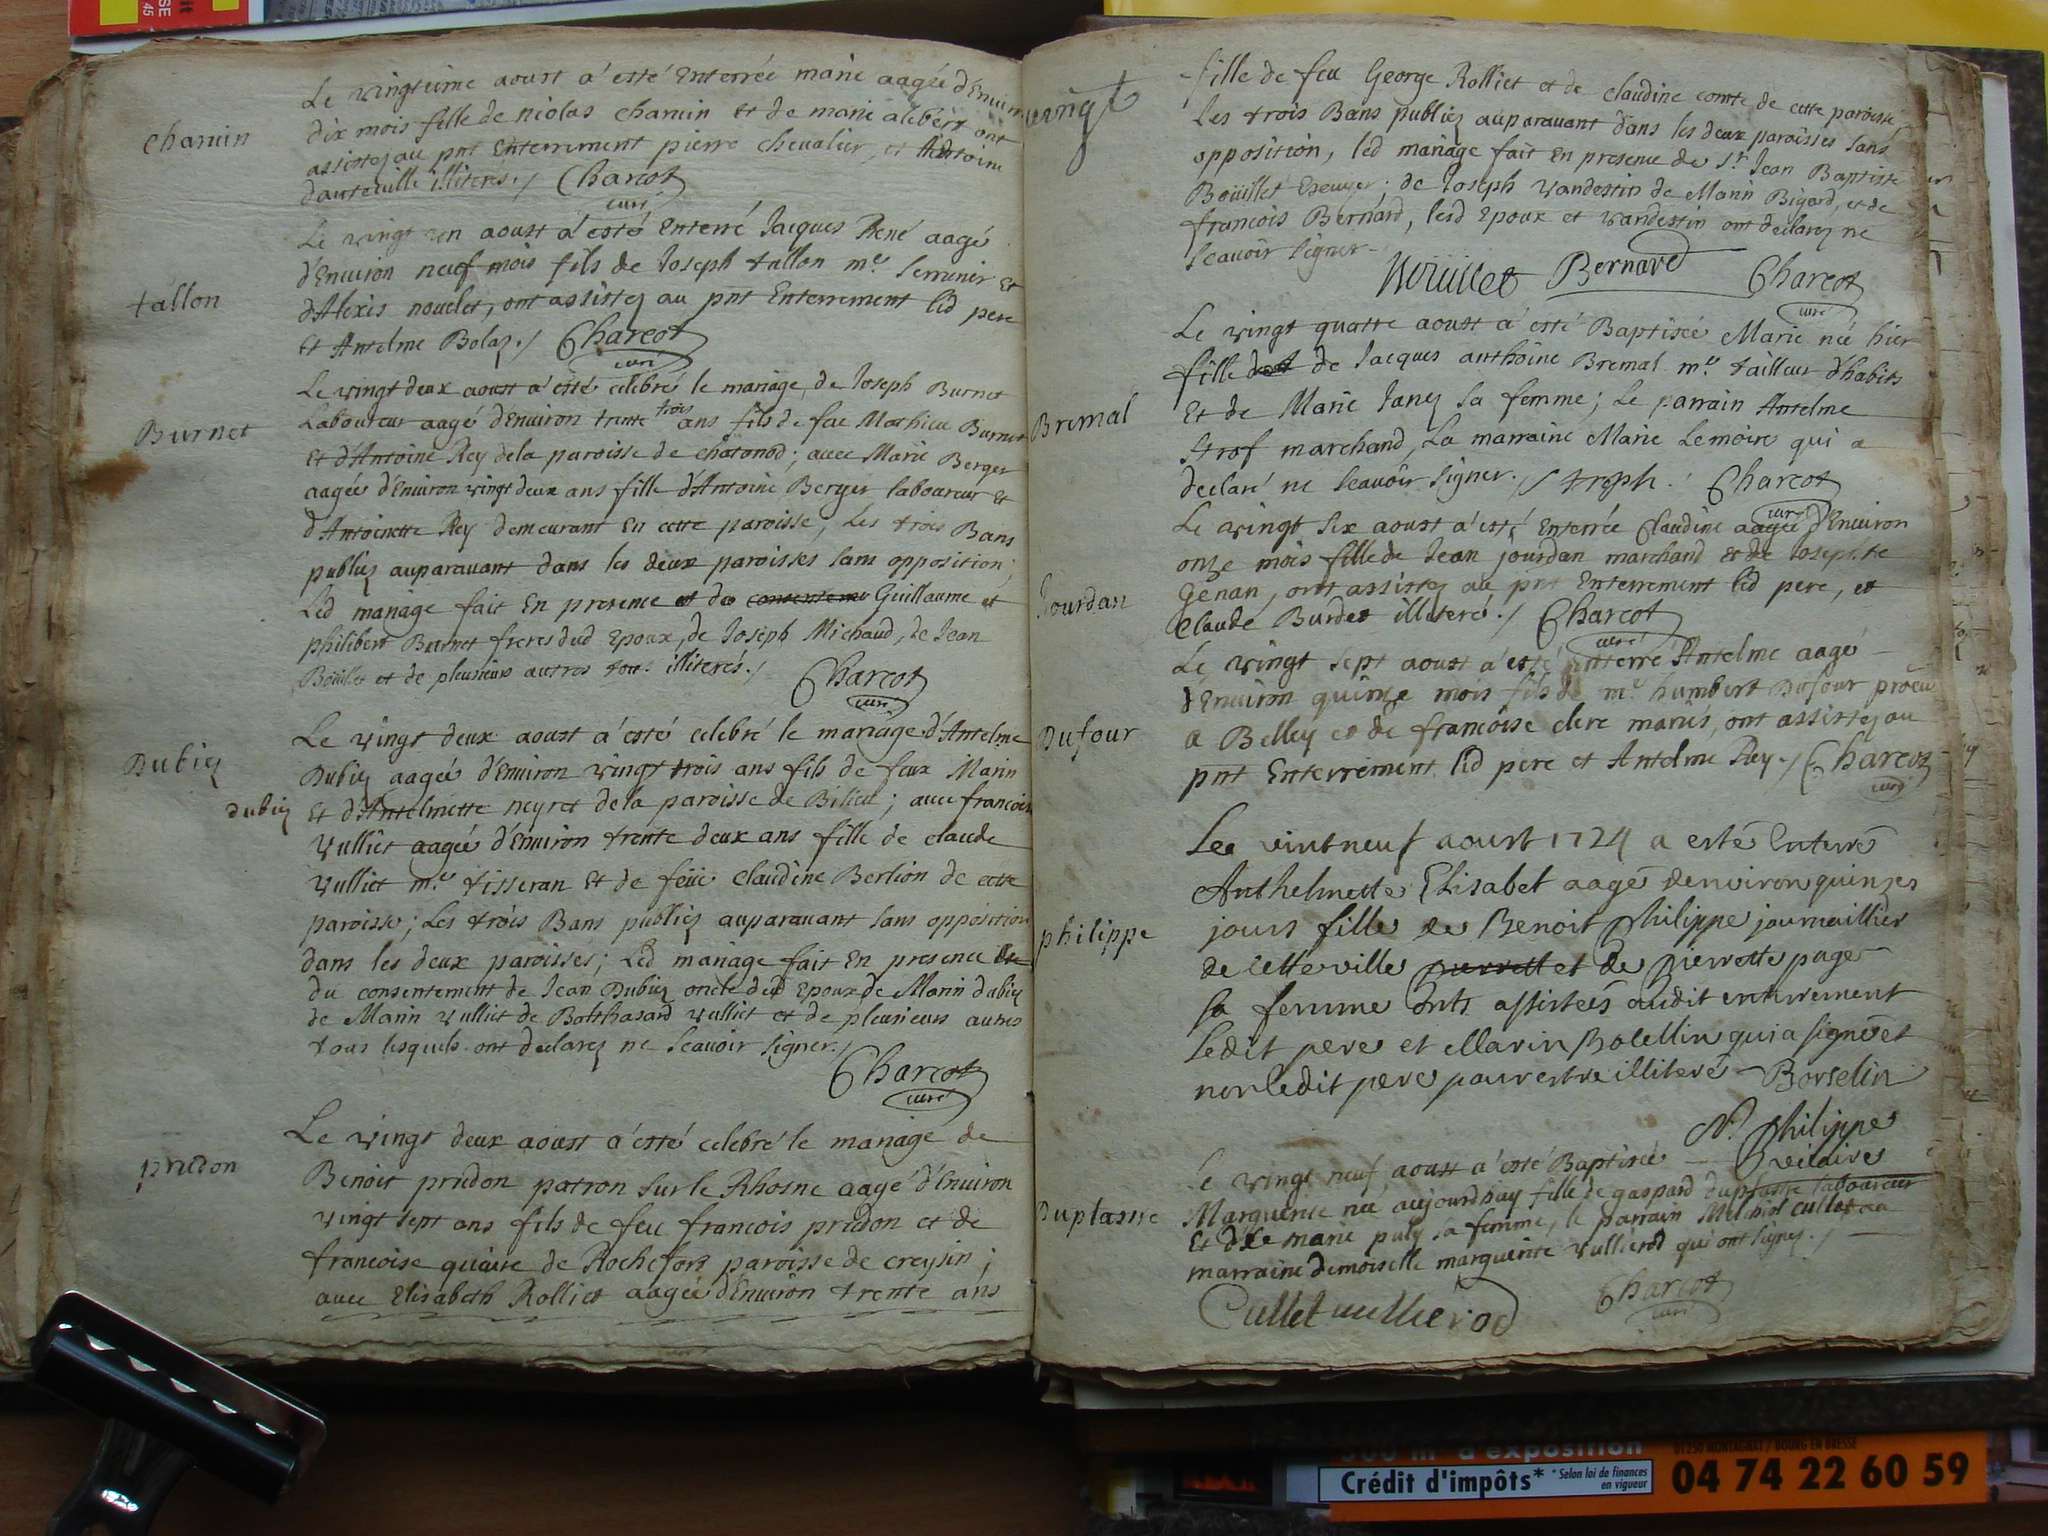 Chamin
Le vingtieme aoust a esté Enterrée marie aagée d'Environ
dix mois fille de nicolas chamin et de marie alibert ont
assistez au pnt Enterrement pierre chevalier, et Antoine
dauteuille illiteres./ Charcot
curé
tallon
Le vingt un aoust a esté Enterré Jacques René aagé
d'Environ neuf mois fils de Joseph tallon me. serrurier Et
d'Alexis nouelet, ont assistez au pnt Enterrement led pere
Et Antelme Bolaz./ Charcot
curé
Burnet
Le vingt deux aoust a esté celebré le mariage, de Joseph Burnet
Laboureur aagé d'Environ trente trois ans fils de feu Mathieu Burnet
Et d'Antoine Rey de la paroisse de chatonod; avec Marie Berger
aagée d'Environ vingt deux ans fille d'Antoine Berger laboureur Et
d'Antoinette Rey demeurant En cette paroisse, Les trois Bans
publiez auparavant dans les deux paroisses sans opposition;
Led mariage fait En presence et de consenteme Guillaume et
philibert Burnet freres dud Epoux, de Joseph Michaud, de Jean
Boüillet et de plusieurs autres tous illiterés./
Charcot
curé
Dubiez
dubiez
Le vingt deux aoust a esté celebré le mariage d'Antelme
Dubiez aagée d'Environ vingt trois ans fils de feux Marin
Et d'Antelmette neyret de la paroisse de Bilieu; avec francoise
Vulliet aagée d'Environ trente deux ans fille de claude
Vulliet me. tisseran Et de feüe Claudine Berlion de cette
paroisse; Les trois Bans publiez auparavant sans opposition
dans les deux paroisses; Led mariage fait En presence
du consentement de Jean Dubiez oncle dud Epoux de Marin dubiez
de Marin Vulliet de Balthasard Vulliet et de plusieurs autres
tous lesquels ont declarez ne sçauoir signer./
Charcot
curé
prudon
Le vingt deux aoust a esté celebré le mariage de
Benoit prudon patron sur le Rhosne aagé d'Environ
vingt sept ans fils de feu francois prudon et de
francoise quiaire de Rochefort paroisse de creysin;
avec Elisabeth Rolliet aagée d'Environ trente ans
vingt
fille de feu George Rolliet et de claudine comte de cette paroisse
Les trois Bans publiez auparavant dans les deux paroisses sans
opposition, led mariage fait En presence de Sr. Jean Baptiste
Boüillet Escuyer; de Joseph vandestin de Marin Bigard, et de
francois Bernard, lesd Epoux et vandestin ont declarez ne
sçauoir signer
Boüillet Bernard Charcot
curé
Bremal
Le vingt quatre aoust a esté Baptisée Marie née hier
fille de Jacques anthoine Bremal me. tailleur d'habits
Et de Marie Janez sa femme; Le parrain Antelme
Strof marchand, La marraine Marie Lemoire qui a
declaré ne sçauoir signer./ stroph. Charcot
curé
Jourdan
Le vingt six aoust a esté Enterrée Claudine aagée d'Environ
onze mois fille de Jean jourdan marchand et de Josephte
Genan, ont assistez au pnt Enterrement led pere, et
Claude Burdet illiteré./ Charcot
curé
Dufour
Le vingt sept aoust a esté Enterré Antelme aagé
d'Environ quinze mois fils de me. humbert Dufour procur
a Belley et de francoise clerc mariés, ont assistez au
pnt Enterrement led pere et Antelme Rey./ Charcot
curé
philippe
Lee vint neuf aoust 1724 a esté Enterré
Anthelmette Elisabet aagé denviron quinzes
jours fille de Benoit Philippe journaillier
de cette ville Perrett et de Pierrette page
sa femme Onts assistées audit enterrement
Ledit pere et Marin Bolellin qui a signé et
non ledit pere pour estre illiteré Borselin
N. Philippe
vicaire
Duplastre
Le vingt neuf aoust a esté Baptisée
Marguerite née aujourdhuy fille de gaspard Duplastre laboureur
Et de marie puly sa femme, le parrain Melchiol cullet la
marraine demoiselle marguerite Vullierod qui ont signez./
Charcot
curé
Cullet vullierod
500 m² d'exposition
01250 MONTAGNAT / BOURG EN BRESSE
Crédit d'impôts* *Selon loi de finances
en vigueur
04 74 22 60 59